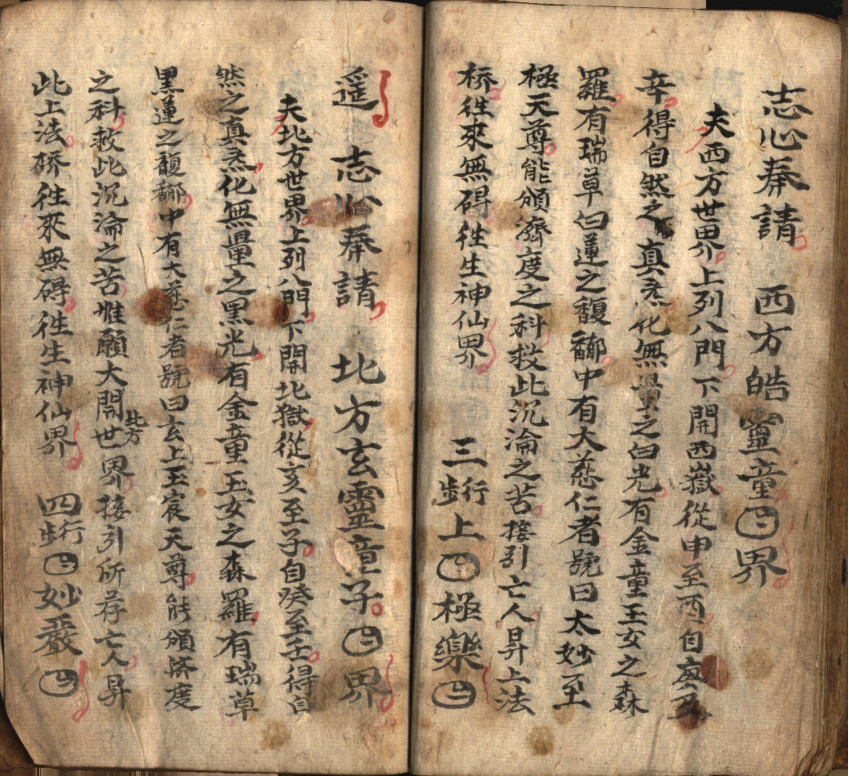 志心奉請 西方皓靈童㊁界
夫西方世界上列八門下開西嶽從申至酉自庚至
辛得自然之真炁化無量之白光有金童玉女之森
羅有瑞草白蓮之馥郁中有大慈仁者號曰太妙至
極天尊能頒濟度之科救此沉淪之苦接引亡人昇上法
桥徃來無碍徃生神仙界 三行步上㊀極樂㊂
遥 志心奉請 北方玄靈童子㊁界
夫北方世界上列八門下開北獄從亥至子自癸至壬得自
然之真炁化無量之黑光有金童玉女之森羅有瑞草
黑蓮之馥郁中有大慈仁者號曰玄上玉宸天尊能頒济度
之科救此沉淪之苦惟願大開北方世界接引所荐亡人昇
此上法桥徃來無碍徃生神仙界 四行步㊀妙嚴㊁